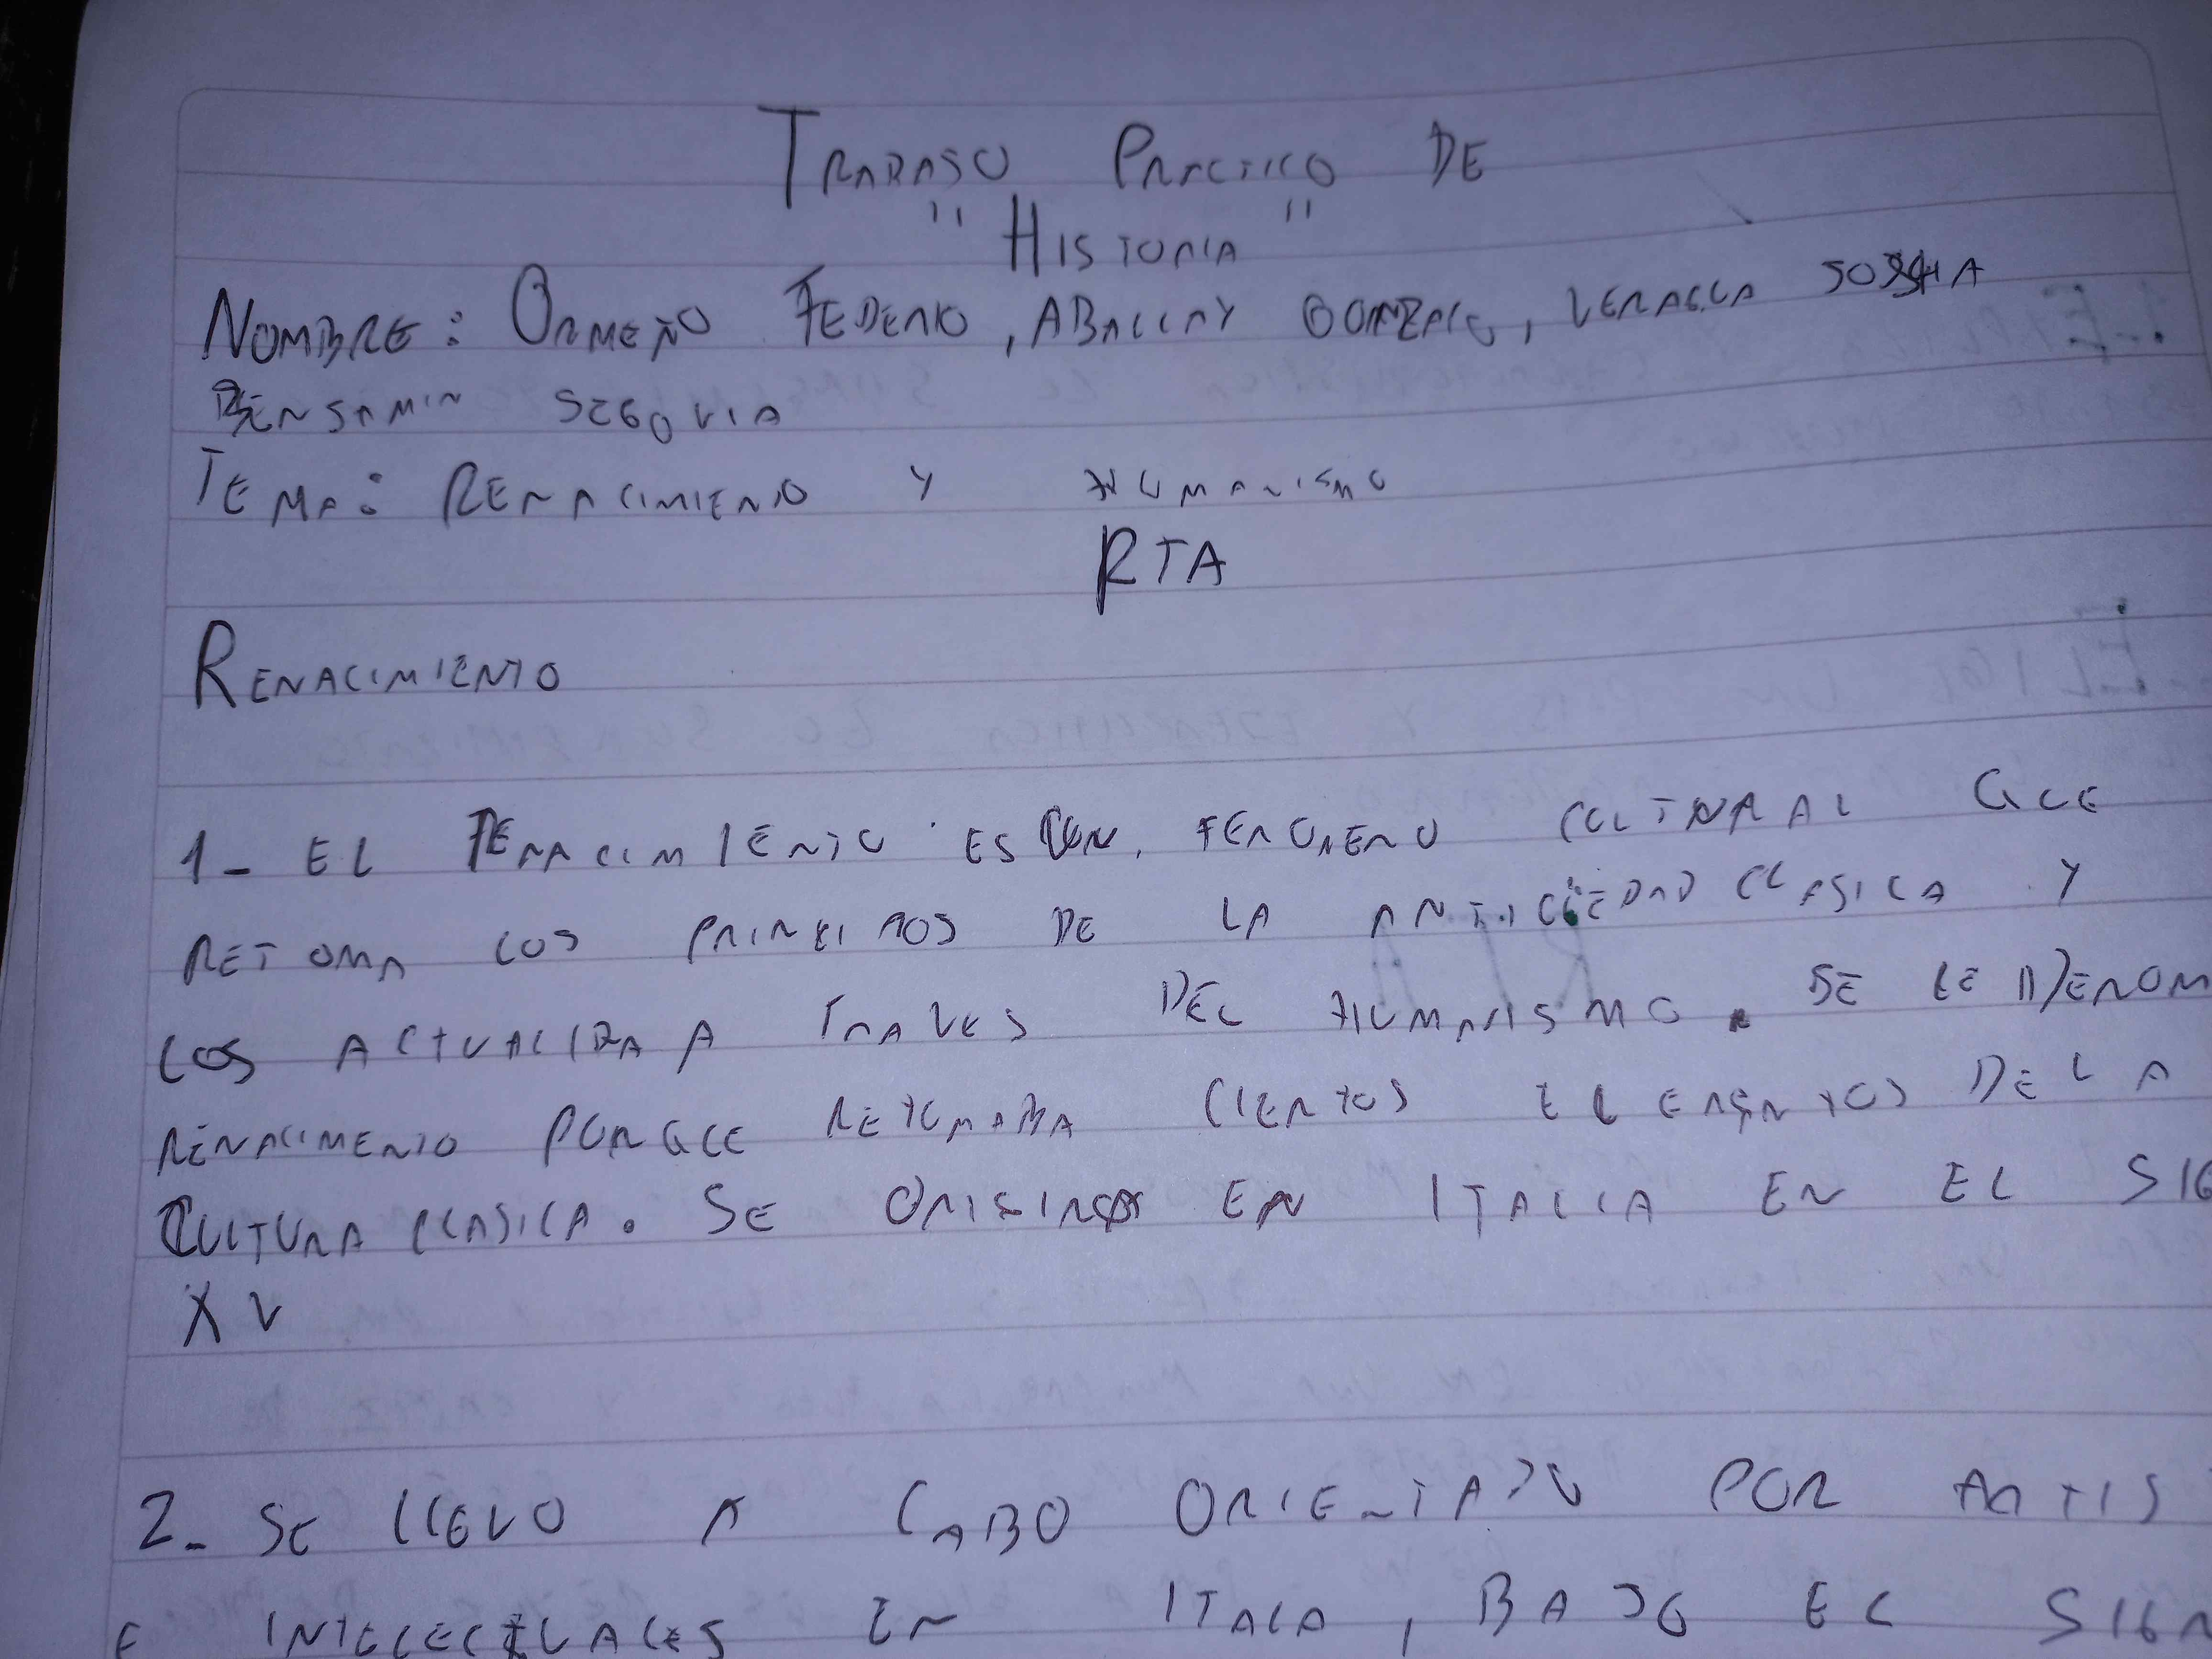 TRABAJO PRACTICO DE
"HISTORIA"
NOMBRE: ORMEÑO FEDERICO, ABALLAY GONZALO, VERAGUA
BENJAMIN SEGOVIA
TEMA: RENACIMIENTO Y HUMANISMO
RTA
RENACIMIENTO
1- EL RENACIMIENTO ES UN FENOMENO CULTURAL QUE
RETOMA LOS PRINCIPIOS DE LA ANTIGUEDAD CLASICA Y
LOS ACTUALIZA A TRAVES DEL HUMANISMO. SE LE DENOM
RENACIMENTO PORQUE RETOMABA CIERTOS ELEMENTOS DE LA
CULTURA CLASICA. SE ORIGINO EN ITALIA EN EL SIG
XV
2- SE LLEVO A CABO ORIENTADO POR ARTIS
E INTELECTUALES EN ITALIA, BAJO EL SIGN